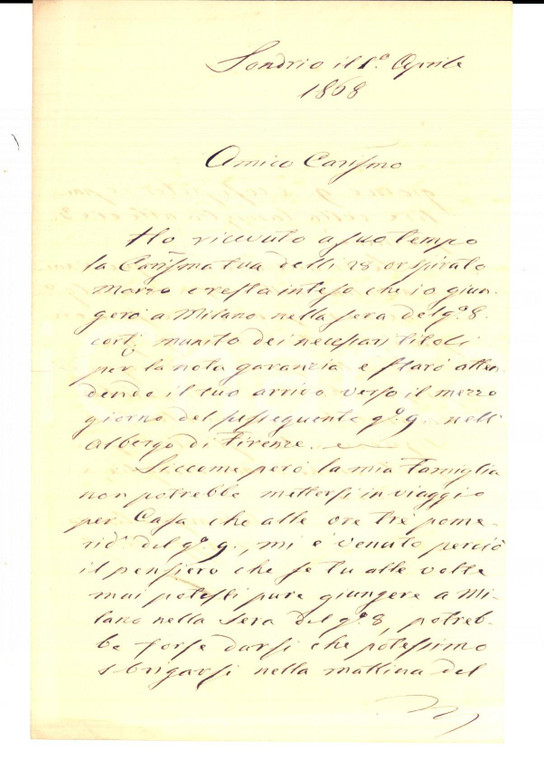 Sondrio il 1.º Aprile
1868
Amico Carissmo
Ho ricevuto a suo tempo
la Carissma tua delli 28 or spirato
Marzo e resta inteso che io giun-
gerò a Milano nella sera del gº. 8
cort.e munito dei necessari titoli
per la nota garanzia e starò atten-
dendo il tuo arrivo verso il mezzo
giorno del susseguente gº. 9. nell'
albergo di Firenze.
Siccome però la mia Famiglia
non potrebbe mettersi in viaggio
per Casa che alle ore tre pome-
rid.e del gº. 9., mi è venuto perciò
il pensiero che se tu alle volte
mai potessi pure giungere a Mi-
lano nella sera del gº 8, potreb-
be forse darsi che potessimo
sbrigarsi nella mattina del